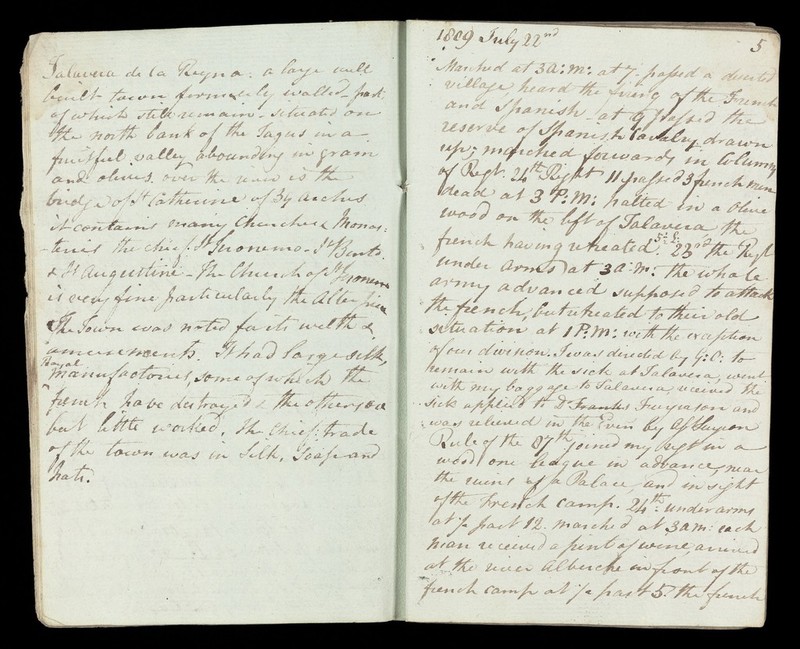 Talavera de la Reyna. a large well
built town formerly walled part
of which still remain - situated on
the north bank of the Tagus in a
fruitful valley abounding in grain
and olives. over the river is the
bridge of St Catherine of 34 arches
it contains many Churches & Monas-
-teries the chief St Jeronemo - St Bento
& St Augustine - The Church of St Jeronemo
is very fine particularly the Alter piece
The Town was noted for its welth &
amusements. It had large silk
Royal
manufactories, some of which the
french have destroyed & the others are
but little worked. The Chief trade
of the town was in Silk, Soap and
hats.
1809 July 22nd
5
Marched at 3 a:m: at 7. passed a deserted
village, heard the firing of the French
and Spanish - at 9 passed the
reserve of Spanish Cavalry drawn
up; marched forwards in Collumns
of Regt. 24th Right 11 passed 3 french men
dead at 3 P:M: halted in a Olive
wood on the left of Talavera the
french having retreated. 23rd the Regt
under arms at 3 a:m: the whole
army advanced supposed to attack
the french, but retreated to their old
situation at 1 P:M: with the exception
of our division. I was directed by G:O: to
remain with the sick at Talavera, went
with my baggage to Talavera, received the
sick applied to Dr Franks Ferguson and
was relieved in the Even by Ast Surgeon
Rule of the 87th joined my Regt in a
wood one league in advance, near
the ruins of a Palace, and in sight
of the French camp. 24th: under arms
at 1/2 past 12. marched at 3 am: each
man received a pint of wine arrived
at the river Alberche in front of the
french camp at 1/2 past 5. the french